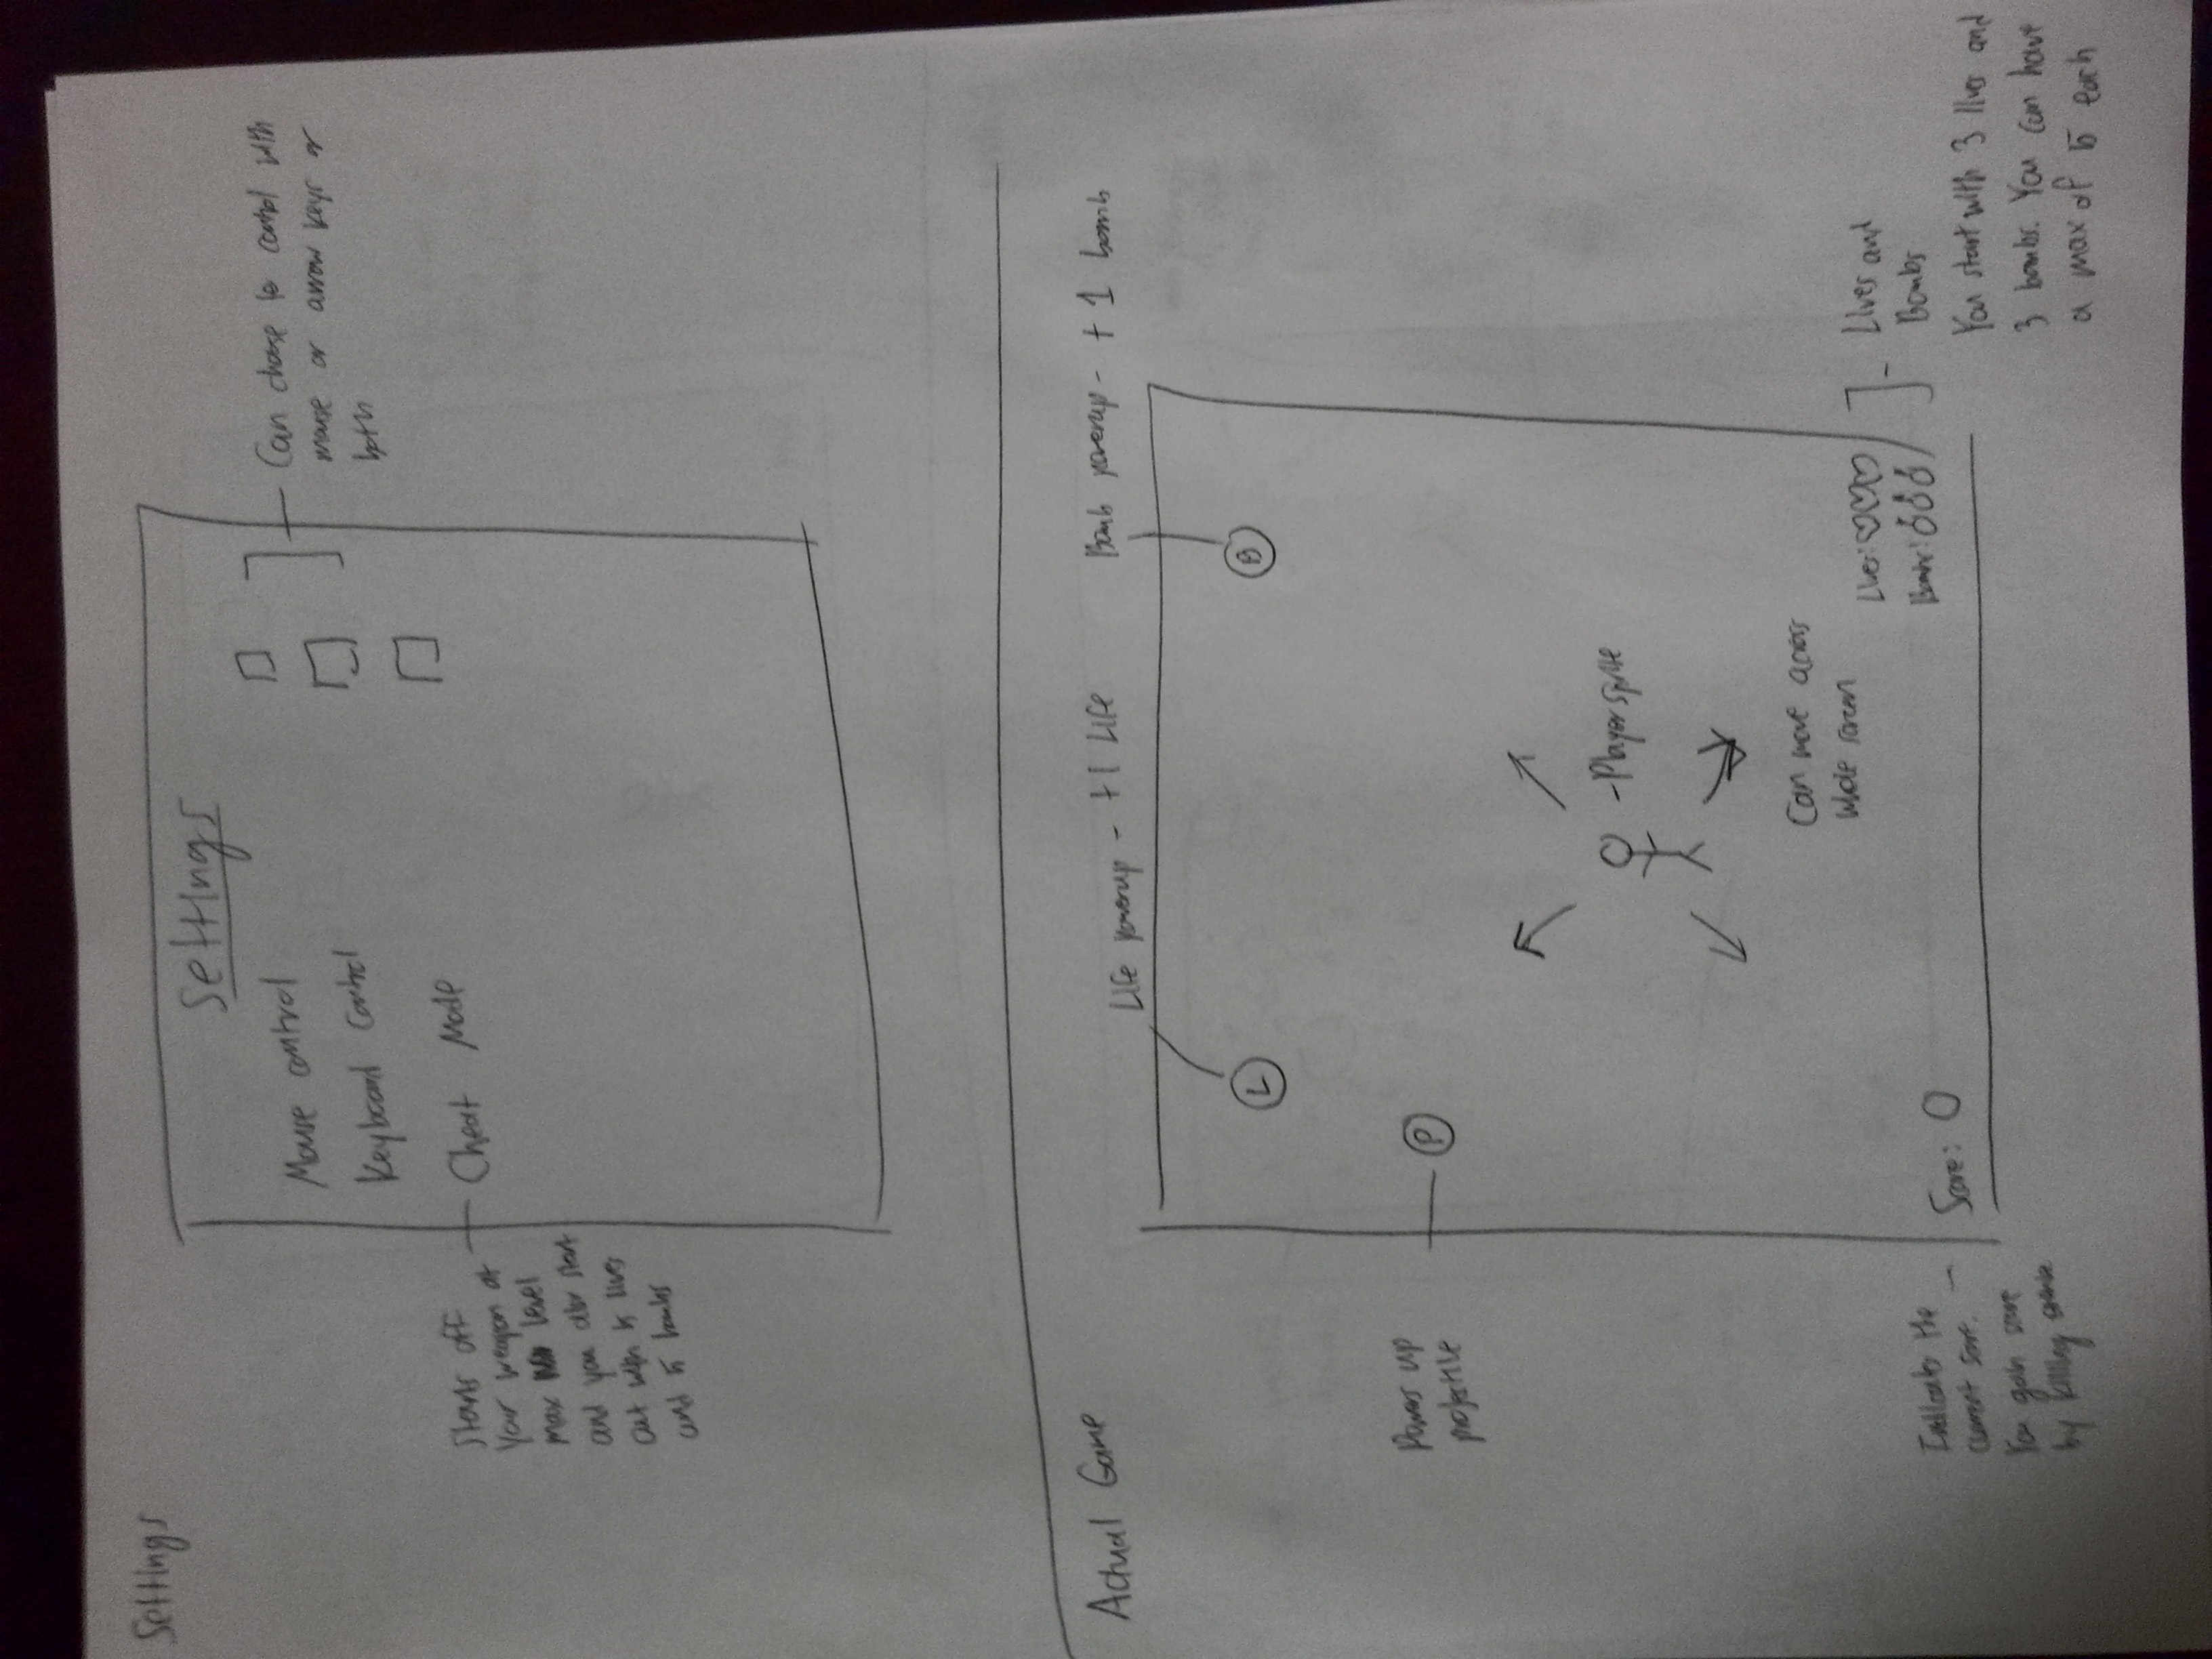 Settings
Settings
Mouse control
Keyboard control
Cheat Mode
Can choose to control with
mouse or arrow keys or
both
Starts off
Your weapon at
max level
and you also start
out with 5 lives
and 5 bombs
Actual Game
Life powerup - +1 Life
Bomb powerup - +1 bomb
L
B
Powers up
projectile
P
-Player sprite
Can move across
whole screen
Lives:
Bombs:
Lives and
Bombs
You start with 3 lives and
3 bombs. You can have
a max of 5 each
Score: 0
Indicates the
current score.
You gain score
by killing